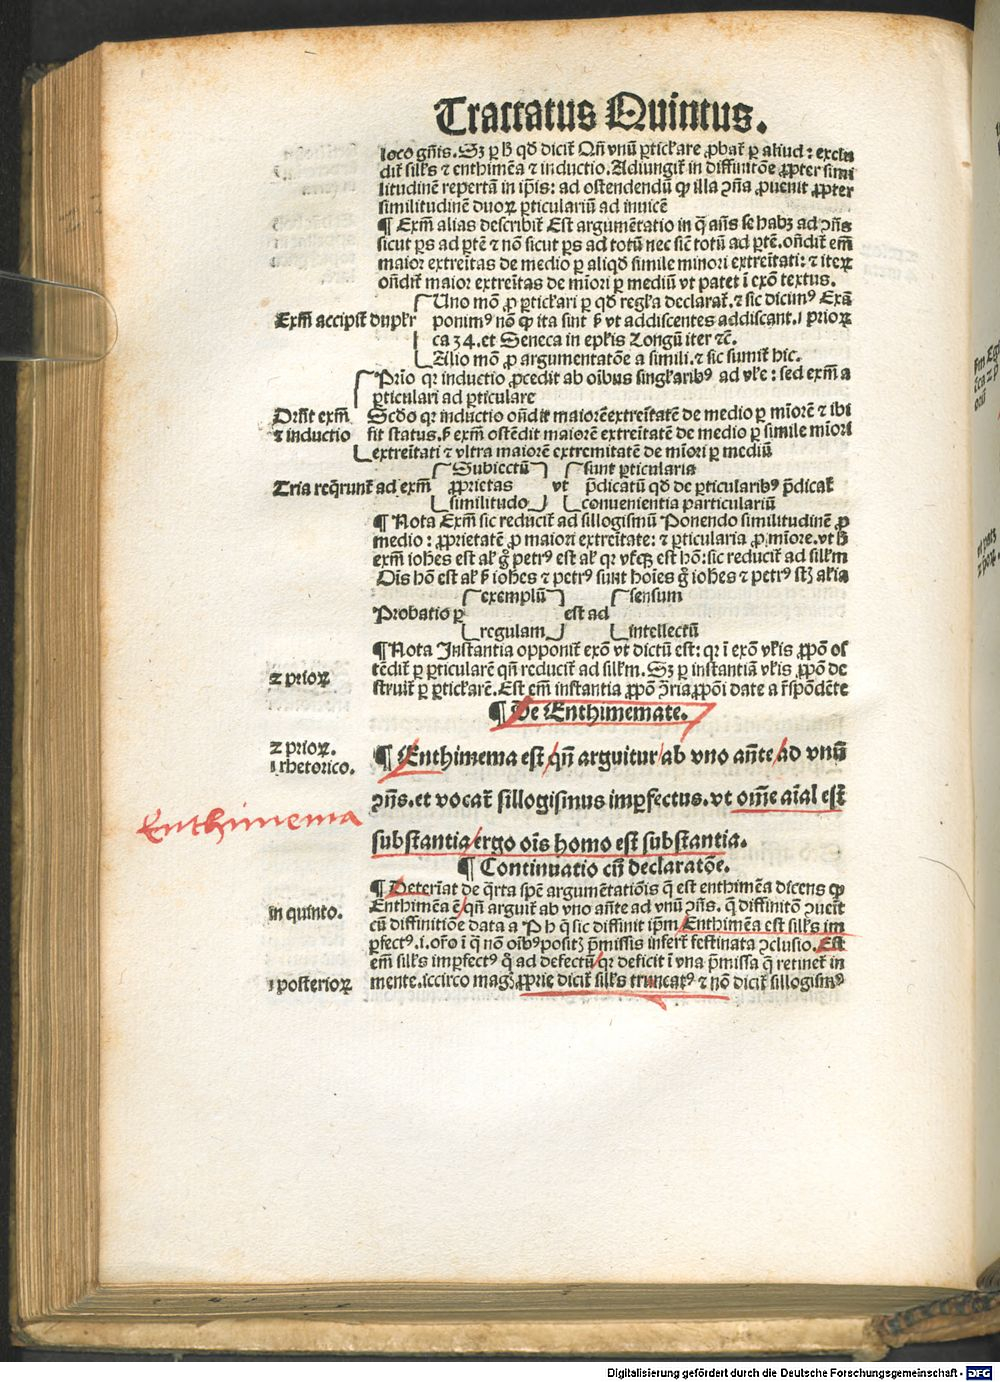 Tractatus Quintus.
loco gñis. Sz ꝑ hͦ qd̄ dicit̄ Qñ vnū ꝑtickare ꝓbat̄ ꝑ aliud: exclu
dit̄ silk̄s ⁊ enthimēa ⁊ inductio. Adiungit̄ in diffinitōe ꝓpter simi
litudinē repertā in ip̄is: ad ostendendū ꝙ illa ꝯña ꝓuenit ꝓpter
similitudinē duoꝝ ꝑticulariū ad inuicē
¶ Exm̄ alias describit̄ Est argumētatio in q̄ añs se habꝫ ad ꝯñs
sicut ꝑs ad ꝑtē ⁊ nō sicut ꝑs ad totū nec siē totū ad ꝑtē. oñdit̄ em̄
maior extreītas de medio ꝑ aliqd̄ simile minori extreītati: ⁊ iteꝝ
oñdit̄ maior extreītas de mīori ꝑ mediū vt patet ī exō textus.
Exm̄ accipit̄ duplr̄
Uno mō ꝓ ꝑtickari ꝑ qd̄ regl̄a declarat̄. ⁊ sic dicimꝰ Exā
ponimꝰ nō ꝙ ita sint ẜ vt addiscentes addiscant. ı prioꝝ
ca 34. et Seneca in ep̄kis Longū iter ⁊c̄.
Alio mō ꝓ argumentatōe a simili. ⁊ sic sumit̄ hic.
Drñt exm̄
⁊ inductio
Prīo qr inductio ꝓcedit ab oībus singl̄aribꝰ ad vl̄e: sed exm̄ a
ꝑticulari ad ꝑticulare
Scd̄o qr inductio oñdit maiorē extreītatē de medio ꝑ mīorē ⁊ ibi
fit status. ẜ exm̄ ostēdit maiorē extreītatē de medio ꝑ simile mīori
extreītati ⁊ vltra maiorē extremitatē de mīori ꝑ mediū
Tria req̄runt̄ ad exm̄
Subiectū
ꝓprietas
similitudo
vt
sunt ꝑticularia
p̄dicatū qd̄ de ꝑticularibꝰ p̄dicat̄
conuenientia particulariū
¶ Nota Exm̄ sic reducit̄ ad sillogismū Ponendo similitudinē ꝓ
medio: ꝓprietatē ꝓ maiori extreītate: ⁊ ꝑticularia ꝓ mīore. vt hͦ
exm̄ iohēs est al̄ gͦ petrꝰ est al̄ qr vt̄qꝫ est hō: sic reducit̄ ad silk̄m
Oīs hō est al̄ ẜ iohēs ⁊ petrꝰ sunt hoīes gͦ iohēs ⁊ petrꝰ st̄ aīalia
Probatio ꝑ
exemplū
regulam
est ad
sensum
intellectū
¶ Nota Instantia opponit̄ exō vt dictū est: qr ī exō vl̄is ꝓpō os
tēdit̄ ꝑ ꝑticularē qñ reducit̄ ad silk̄m. Sz ꝑ instantiā vl̄is ꝓpō de
struit̄ ꝑ ꝑtickarē. Est em̄ instantia ꝓpō ꝯ̄ria ꝓpōi date a r̄spōdēte
2 prioꝝ
¶ De Enthimemate.
2 prioꝝ.
ı rhetorico.
¶ Enthimema est qñ arguitur ab vno añte ad vnū
ꝯñs. et vocat̄ sillogismus imꝑfectus. vt om̄e aīal est
Enthimema
substantia ergo oīs homo est substantia.
¶ Continuatio cū declaratōe.
¶ Determ̄at de q̄rta spē argumētatiōis q̄ est enthimēa dicens ꝙ
in quinto.
Enthimēa ē qñ arguit̄ ab vno añte ad vnū ꝯñs. q̄ diffinitō ꝯuēit
cū diffinitiōe data a Ph q̄ sic diffinit ip̄m Enthimēa est silk̄s im
ꝑfectꝰ. i. or̄o ī q̄ nō oībꝰ positꝭ p̄missis infert̄ festinata ꝯclusio. Est
em̄ silk̄s imꝑfectꝰ q̄ ad defectū qr deficit ī vna p̄missa q̄ retinet̄ in
ı posterioꝝ
mente. iccirco magꝭ ꝓprie dicit̄ silk̄s truncatꝰ ⁊ nō dicit̄ sillogismꝰ
Digitalisierung gefördert durch die Deutsche Forschungsgemeinschaft - DFG